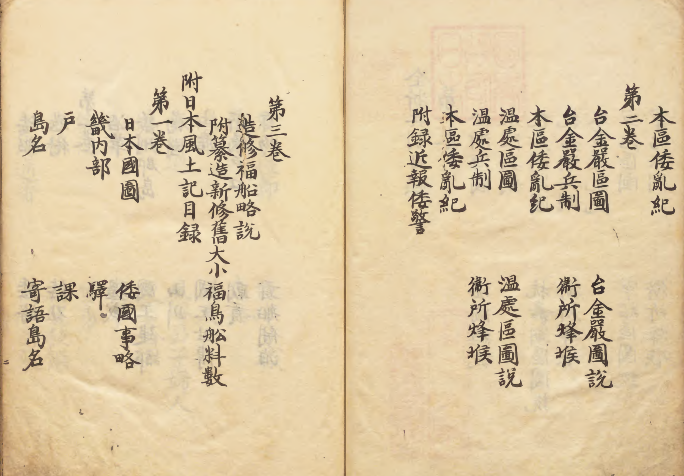 本區倭亂紀
第二卷
台金嚴區圖 台金嚴圖説
台金嚴兵制 衛所烽堠
本區倭亂紀
溫處區圖 溫處區圖説
溫處兵制 衛所烽堠
本區倭亂紀
附録近報倭警
第三卷
造修福船略説
附纂造新修舊大小福鳥船料數
附日本風土記目録
第一卷
日本國圖 倭國事略
畿内部 驛
戸 課
島名 寄語島名